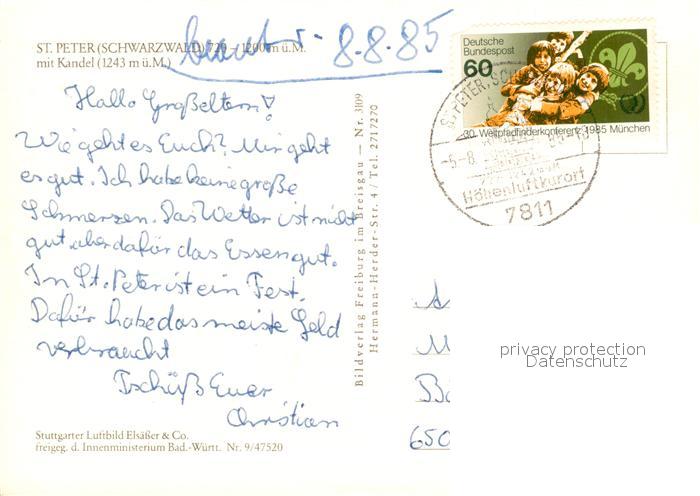 ST. PETER (SCHWARZWALD) 720 – 1200 m ü.M.
mit Kandel (1243 m ü.M.)
beant. 8.8.85
Hallo Großeltern!
Wie geht es Euch? Mir geht
es gut. Ich habe keine große
Schmerzen. Das Wetter ist nicht
gut, aber dafür das Essen gut.
In St. Peter ist ein Fest.
Dafür habe das meiste Geld
verbraucht
Tschüß Euer
Christian
Stuttgarter Luftbild Elsäßer & Co.
freigeg. d. Innenministerium Bad.-Württ. Nr. 9/47520
Bildverlag Freiburg im Breisgau — Nr. 3109
Hermann-Herder-Str. 4 / Tel. 2717270
Deutsche
Bundespost
60
30. Weltpfadfinderkonferenz 1985 München
ST. PETER, SCH
-6.-8.
Höhenluftkurort
7811
A
M
Bi
650
privacy protection
Datenschutz